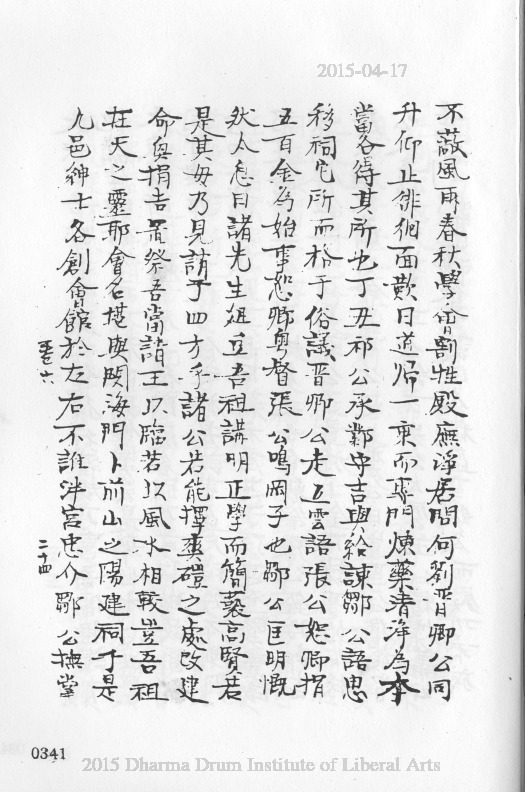 2015-04-17
不蔽風雨春秋學會割牲殿廡淨居間何劉晋卿公同
升仰止徘徊面歎曰道歸一乗而專門煉藥清淨為本
當各得其所也丁丑祁公承鄴守吉與給諫鄒公語思
移祠它所而格于俗議晋卿公走五雲語張公恕卿捐
五百金為始事恕卿粤督張公鳴岡子也鄒公匡明慨
然太息曰諸先生俎豆吾祖講明正學而簡䙝高賢若
是其毋乃見誚于四方乎諸公若能擇爽磑之處改建
命與捐吉蠲祭吾當請王以臨若以風水相較豈吾祖
在天之靈耶會名堪輿閱海門卜前山之陽建祠于是
九邑紳士各創會館於左右不誰泮宮忠介鄒公撫掌
卷六
二十四
0341
2015 Dharma Drum Institute of Liberal Arts